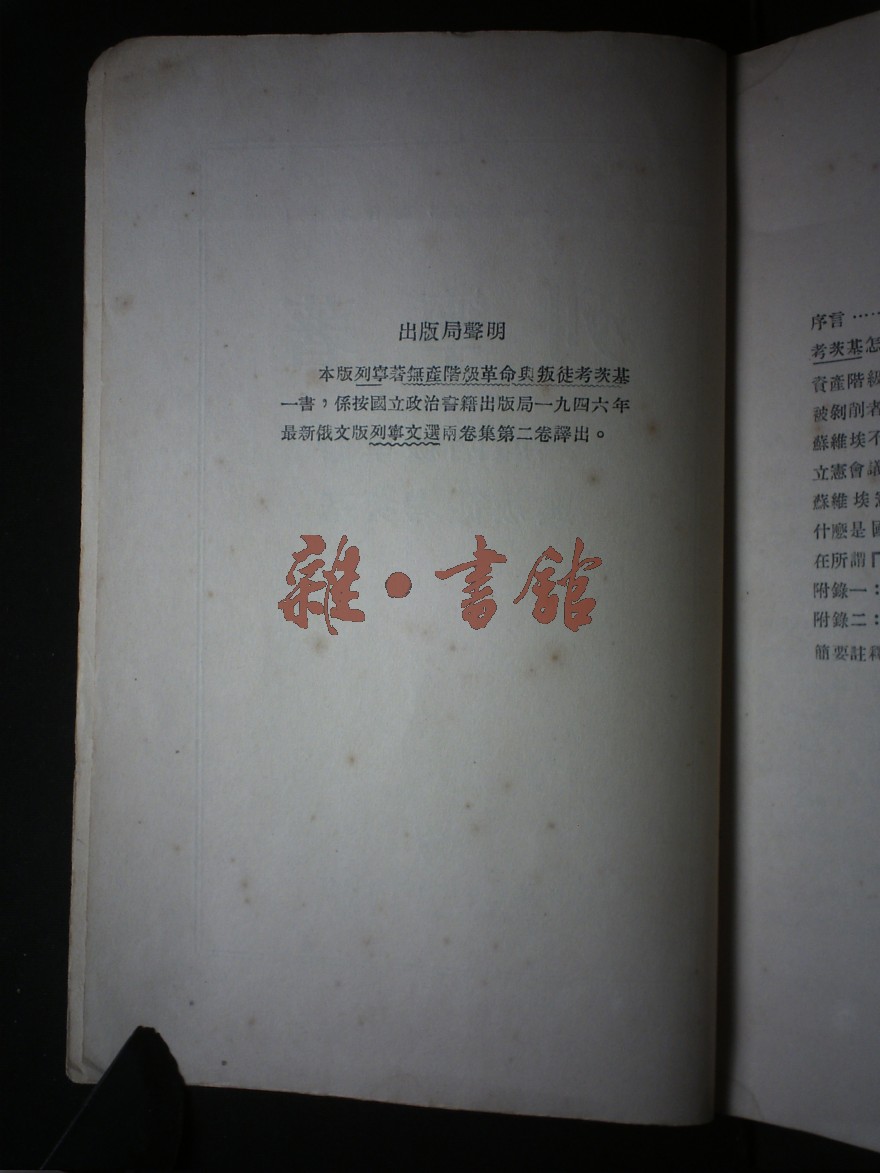 出版局聲明
本版列寧著無產階級革命與叛徒考茨基
一書，係按國立政治書籍出版局一九四六年
最新俄文版列寧文選兩卷集第二卷譯出。
雜•書館
序言……
考茨基怎
資產階級
被剝削者
蘇維埃不
立憲會議
蘇維埃
什麼是國
在所謂「
附錄一：
附錄二：
簡要註釋